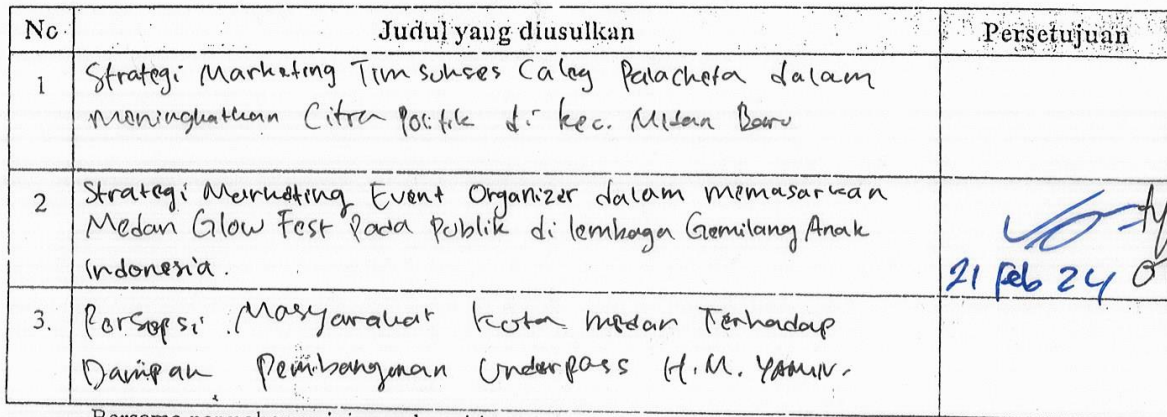 No Judul yang diusulkan Persetujuan
1 Strategi Marketing Tim sukses Caleg Palacheta dalam
meningkatkan Citra Politik di kec. Medan Baru
2 Strategi Marketing Event Organizer dalam memasarkan
Medan Glow Fest Pada Publik di lembaga Gemilang Anak
Indonesia.
21 Feb 24
3. Persepsi Masyarakat Kota medan Terhadap
Dampak Pembangunan Underpass H.M. YAMIN.